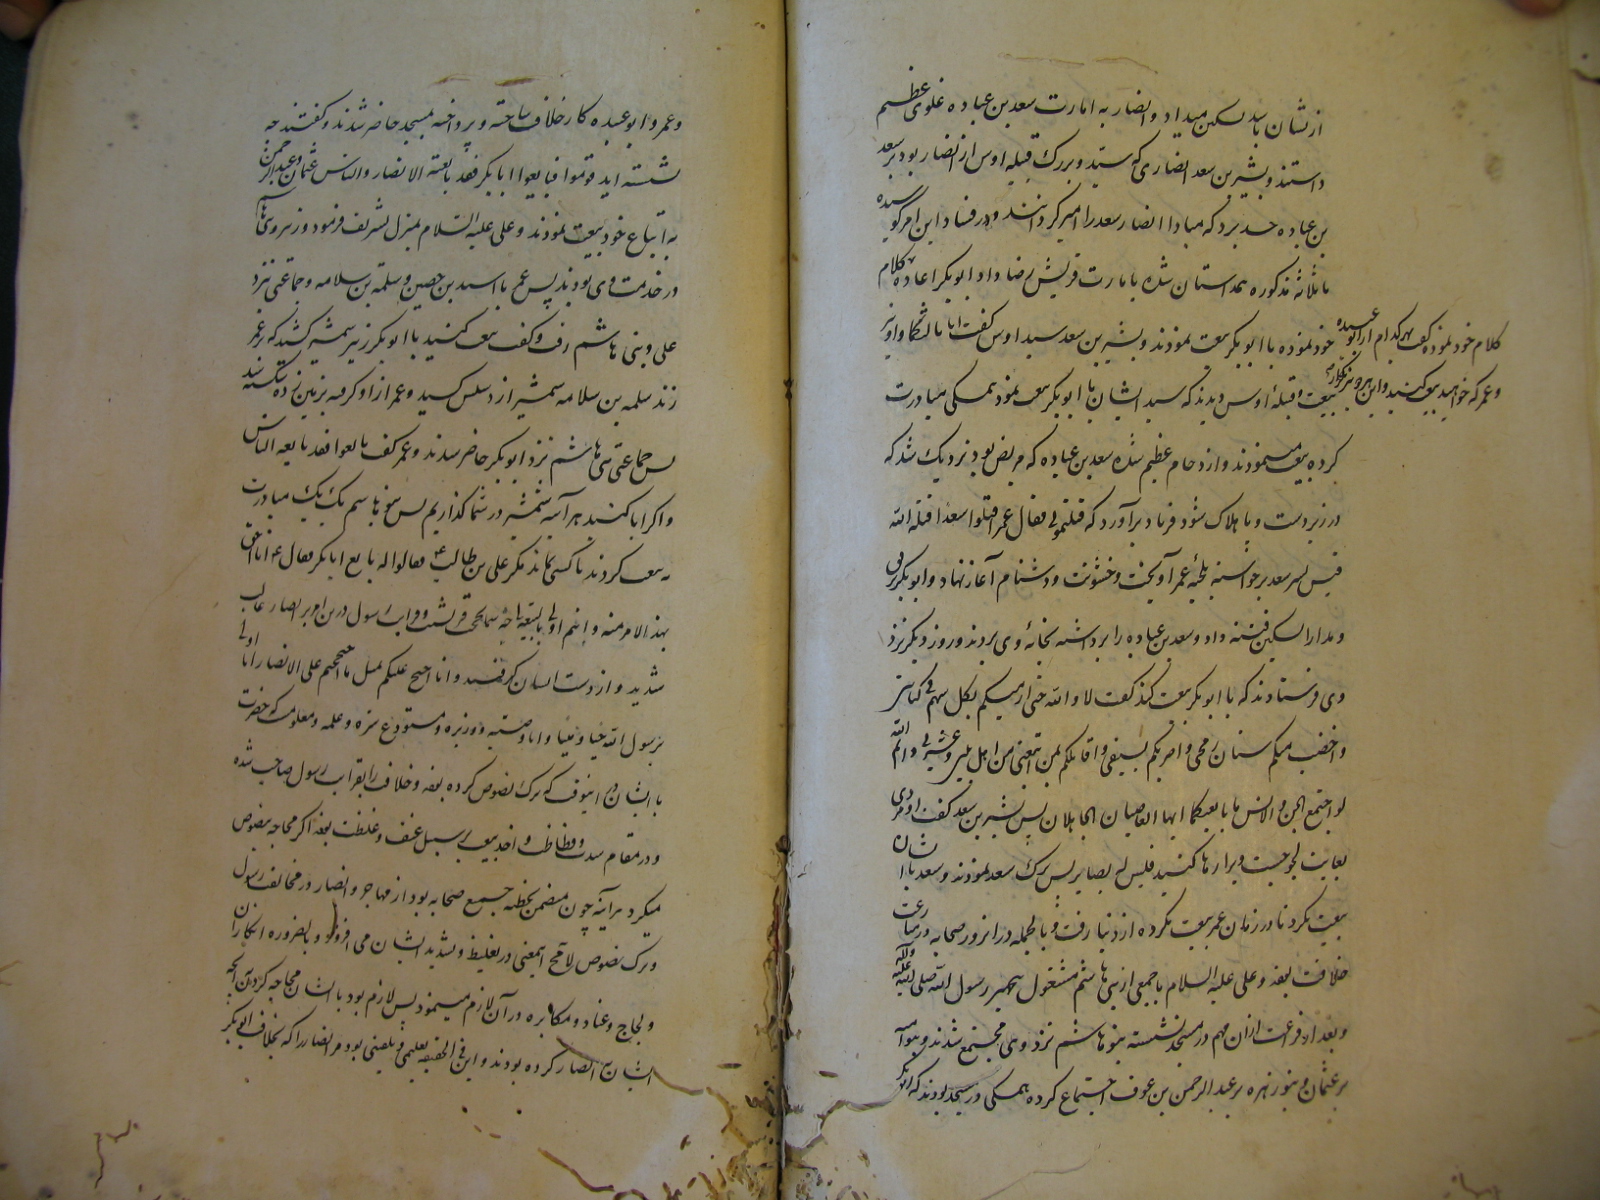 ازیشان باید تسکین میداد و انصار به امارت سعد بن عباده غلوی عظیم
داشتند و بشیر بن سعد انصاری که سید و بزرک قبیله اوس از انصار بود بر سعد
بن عباده حسد برد که مبادا انصار سعد را امیر کردانند و در فساد این امر کوشیده
با ثلاثهٔ مذکوره همداستان شده بامارت قریش رضا داد و ابوبکر اعاده کلام
خود نموده با ابوبکر بیعت نمودند و بشیر بن سعد سید اوس کفت انا ثالثکما و او نیز
کلام خود نموده کفت بهر کدام از ابو عبیده
و عمر که خواهید بیعت کنید و این هر دو نیز
بیعت و قبیلهٔ اوس دیدند که سید ایشان با ابوبکر بیعت نمود همکی مبادرت
کرده بیعت مینمودند و ازدحام عظیم شده سعد بن عباده که مریض بود نزدیک شد که
در زیر دست و پا هلاک شود فریاد برآورد که قتلتمونی فقال عمر اقتلوا سعدا قتله الله
قیس پسر سعد برخواسته بلحیهٔ عمر آویخت و خشونت و دشنام آغاز نهاد و ابوبکر برفق
و مدارا تسکین فتنه داد و سعد بن عباده را برداشته بخانهٔ وی بردند و روز دیکر نزد
وی فرستادند که با ابوبکر بیعت کند کفت لا والله حتی ارمیکم بکل سهم فی کنانتی
و اخضب منکم سنان رمحی و اضربکم بسیفی و اقاتلکم بمن اتبعنی من اهل بیتی و عشیرتی و ایم الله
لو اجتمع الجن و الانس ما بایعتکما ایها العاصیان الجاهلان پس بشیر بن سعد کفت او مردی
بغایت لجوجست ویرا رها کنید فلیس له بضایر پس ترک سعد نمودند و سعد با ایشان
بیعت نکرد تا در زمان عمر بیعت نکرده از دنیا رفت و بالجمله در انروز صحابه در منازعت
خلافت بودند و علی علیه السلام با جمعی از بنی هاشم مشغول تجهیز رسول الله صلی الله علیه و آله
و بعد از فراغت ازان مهم در مسجد نشسته بنو هاشم نزد وی مجتمع شدند و بنو امیه
بر عثمان و بنو زهره بر عبد الرحمن بن عوف اجتماع کرده همکی در مسجد بودند که ابوبکر
و عمر و ابو عبیده کار خلافت ساخته و پرداخته بمسجد حاضر شدند و کفتند چه
نشسته اید قوموا فبایعوا ابابکر فقد بایعته الانصار والناس عثمان و عبد الرحمن
به اتباع خود بیعت نمودند و علی علیه السلام بمنزل تشریف فرمود و زبیر و بنی هاشم
در خدمت وی بودند پس عمر با اسید بن حصین و سلمة بن سلامه و جماعتی نزد
علی و بنی هاشم رفت و کفت بیعت کنید با ابوبکر زبیر شمشیر کشید که بر عمر
زند سلمه بن سلامه شمشیر از دستش کشید و عمر از او کرفته بر زمین زده شکسته شد
پس جماعتی بنی هاشم نزد ابوبکر حاضر شدند و عمر کفت بایعوا فقد بایعه الناس
و اکر ابا کنید هر آینه شمشیر در شما کذاریم پس بنو هاشم یک یک مبادرت
به بیعت کردند تا کسی نماند مکر علی بن ابی طالب ع فقالوا له بایع ابابکر فقال ع انا احق
بهذا الامر منه و انتم اولی بالبیعة لی چه شما بحجت قرابت رسول درین امر بر انصار غالب
شدید و از دست ایشان کرفتید و انا احتج علیکم بمثل ما احتججتم علی الانصار انا اولی
برسول الله حیا و میتا و انا وصیه و وزیره و مستودع سره و علمه و معلومست که حضرت
با ایشان در اینوقت که ترک نصوص کرده بودند و خلافت را بقرابت رسول صاحب شده
و در مقام شدت و فظاظت و اخذ بیعت بر سبیل عنف و غلظت بودند اکر محاجه بنصوص
میکرد هرآینه چون متضمن تخطئه جمیع صحابه بود از مهاجر و انصار در مخالفت رسول
و ترک نصوص لاجرم اینمعنی در تغلیظ و تشدید ایشان می افزود و بالضروره انکار آن
و لجاج و عناد و مکابره در آن لازم مینمود پس لازم بود با ایشان محاجه کردن آنچه
ایشان با انصار کرده بودند و این فی الحقیقه تعلیمی و تلقینی بود مر انصار را که بخلافت ابوبکر